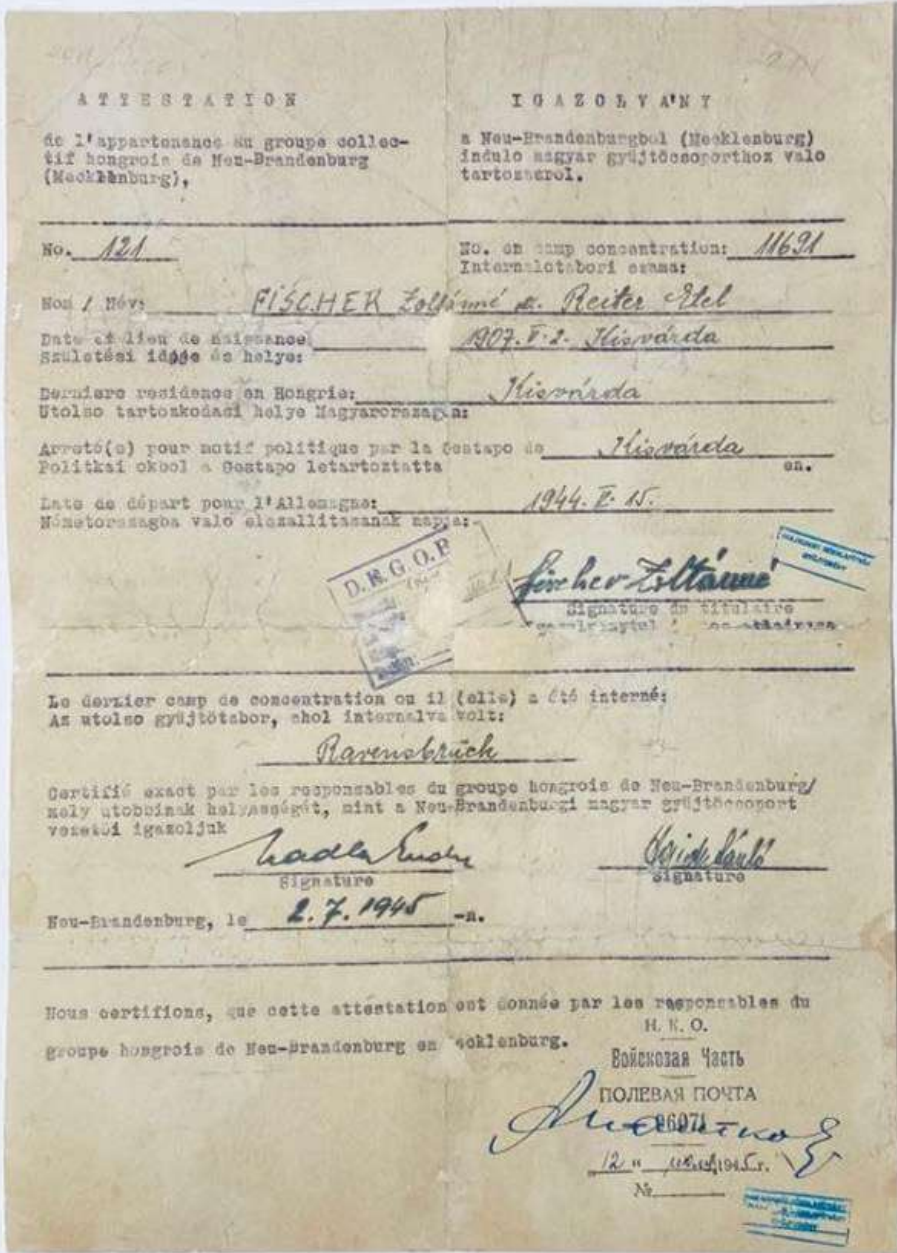 ATTESTATION
de l'appartenance au groupe collec-
tif hongrois de Neu-Brandenburg
(Mecklenburg),
IGAZOLVA'NY
a Neu-Brandenburgbol (Mecklenburg)
indulo magyar gyüjtöcsoporthoz valo
tartozasrol.
No. 121
No. en camp concentration: 11691
Internalotabori szama:
Nom / Név: FISCHER Zoltánné Reiter Etel
Date et lieu de naissance 1907. V. 2. Kisvárda
Születési ideje és helye:
Derniere residence en Hongrie: Kisvárda
Utolso tartozkodasi helye Magyarorszagon:
Arreté(e) pour motif politique par la Gestapo de Kisvárda
Politkai okbol a Gestapo letartoztatta en.
Date de départ pour l'Allemagne: 1944. 15.
Németorszagba valo elszallitasanak napja:
D.E.G.O.B
Fischer Zoltánné
Signature du titulaire
Le dernier camp de concentration ou il (elle) a été interné:
Az utolso gyüjtötabor, ahol internalva volt:
Ravensbrück
Certifié exact par les responsables du groupe hongrois de Neu-Brandenburg/
mely utobbinak helyességét, mint a Neu-Brandenburgi magyar gyüjtöcsoport
vezetöi igazoljuk
Signature
Signature
Neu-Brandenburg, le 2.7.1945 -n.
Nous certifions, que cette attestation est donnée par les responsables du
groupe hongrois de Neu-Brandenburg en
Н. К. О.
Войсковая Часть
ПОЛЕВАЯ ПОЧТА
"12" 1945 г.
№